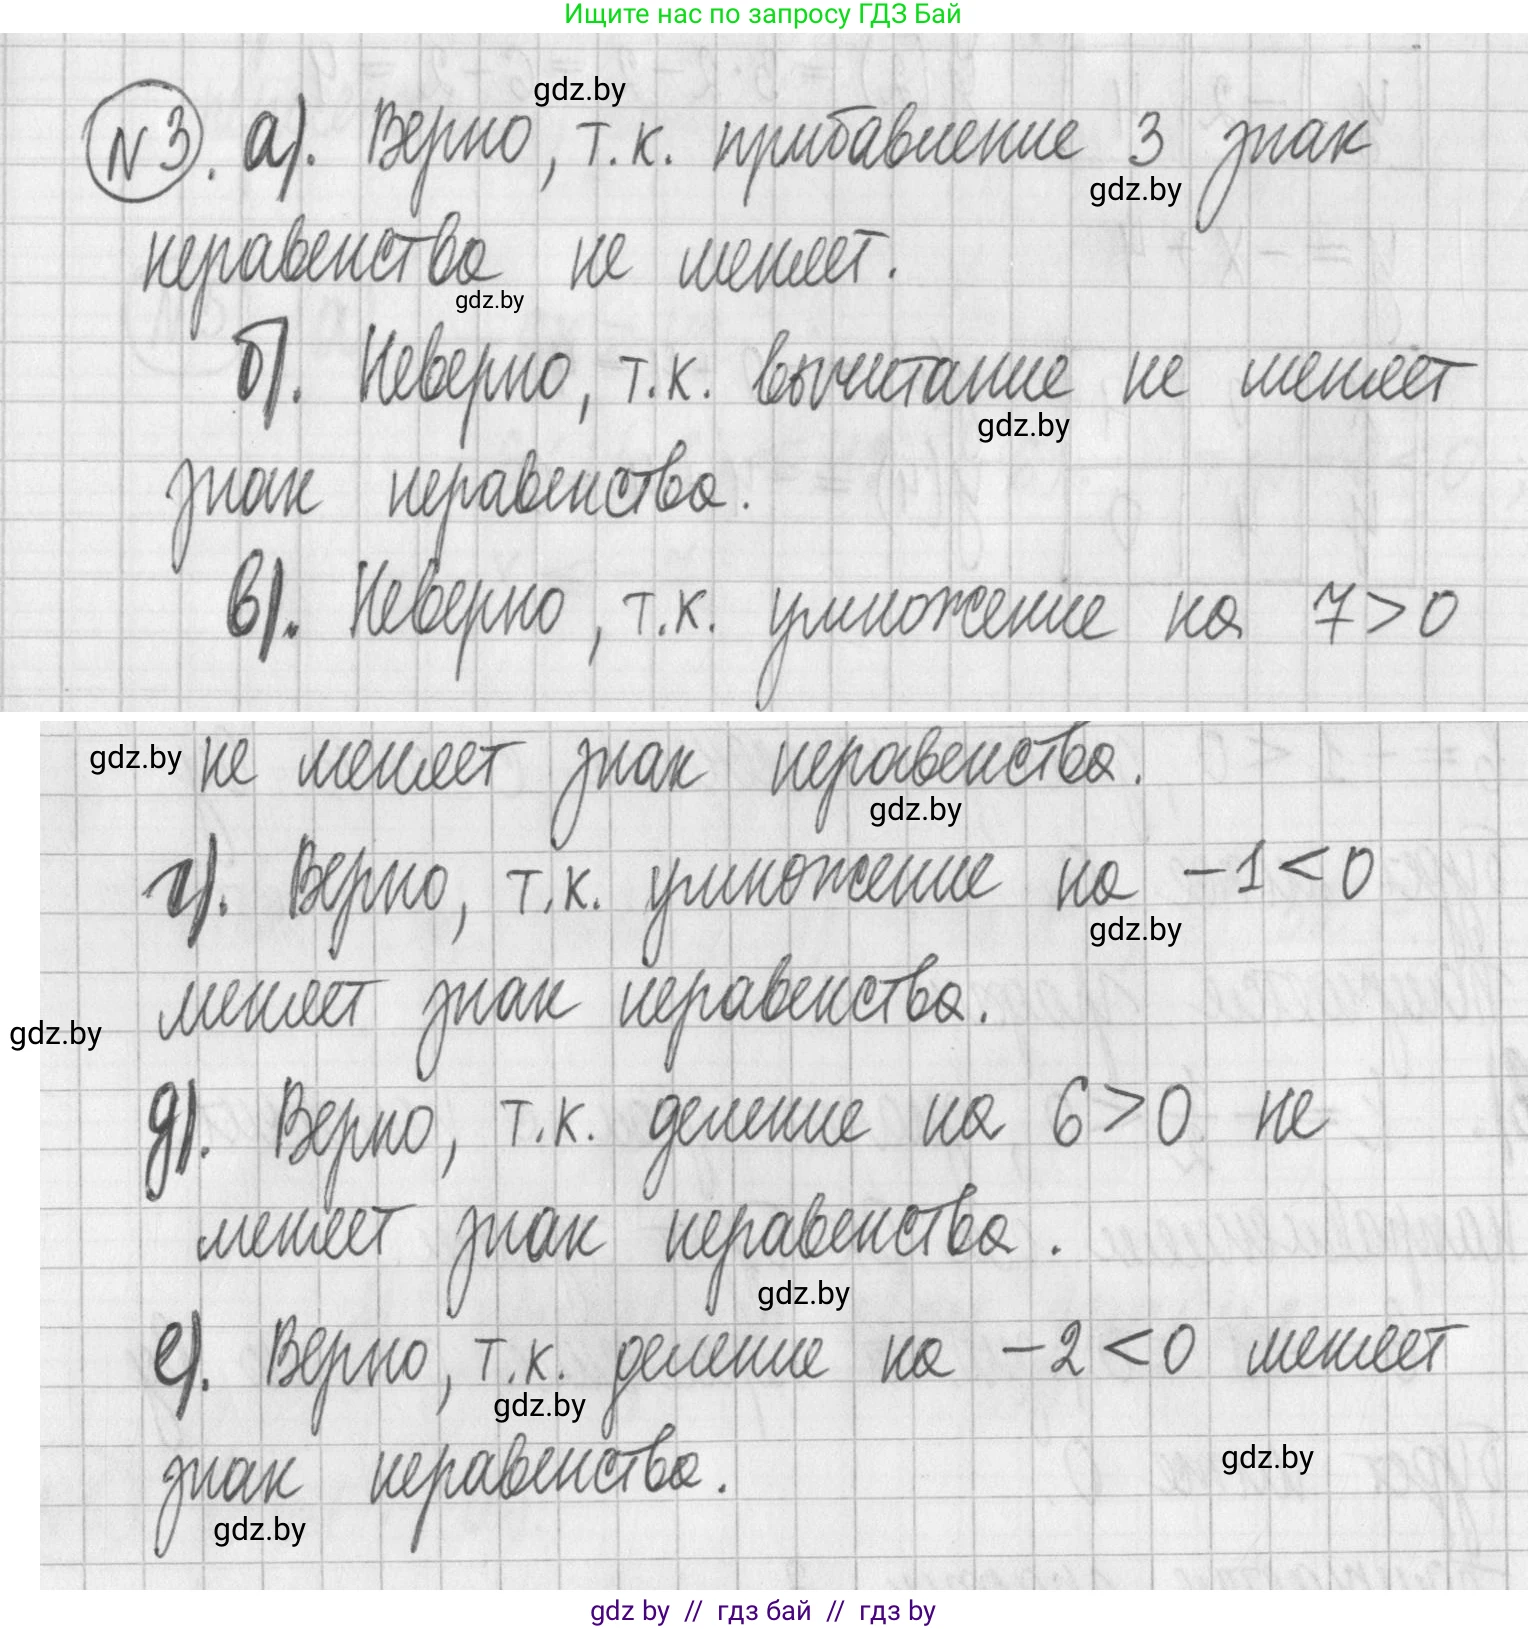 Ищите нас по запросу ГДЗ Бай
gdz.by
№3. а). Верно, т.к. прибавление 3 знак
gdz.by
неравенства не меняет.
gdz.by
б). Неверно, т.к. вычитание не меняет
gdz.by
знак неравенства.
в). Неверно, т.к. умножение на 7>0
gdz.by не меняет знак неравенства.
gdz.by
г). Верно, т.к. умножение на -1<0
gdz.by
меняет знак неравенства.
gdz.by
д). Верно, т.к. деление на 6>0 не
меняет знак неравенства.
gdz.by
е). Верно, т.к. деление на -2<0 меняет
gdz.by
gdz.by
знак неравенства.
gdz.by
gdz by // гдз бай // гдз by